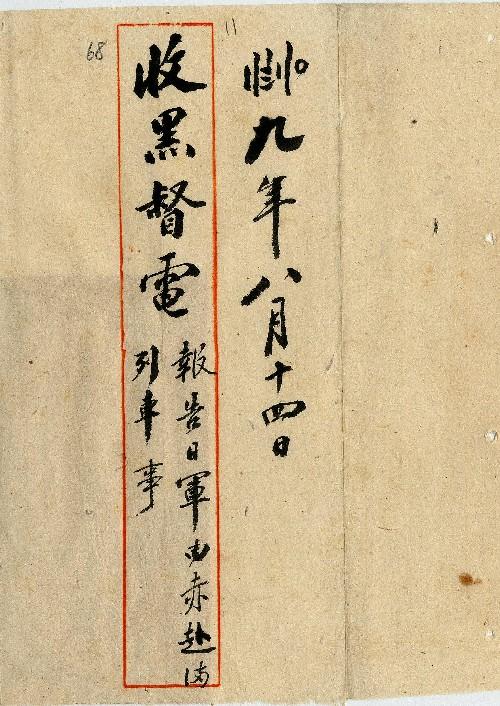 九年八月十四日
11
收黑督電
報告日軍由赤赴滿
列車事
68